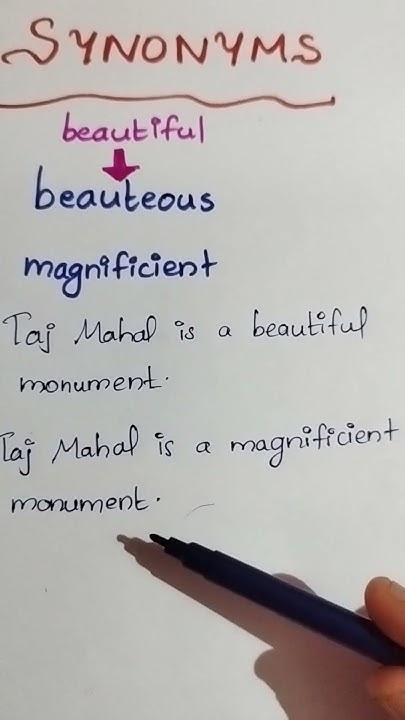 SYNONYMS
beautiful
beauteous
magnificient
Taj Mahal is a beautiful
monument.
Taj Mahal is a magnificient
monument.